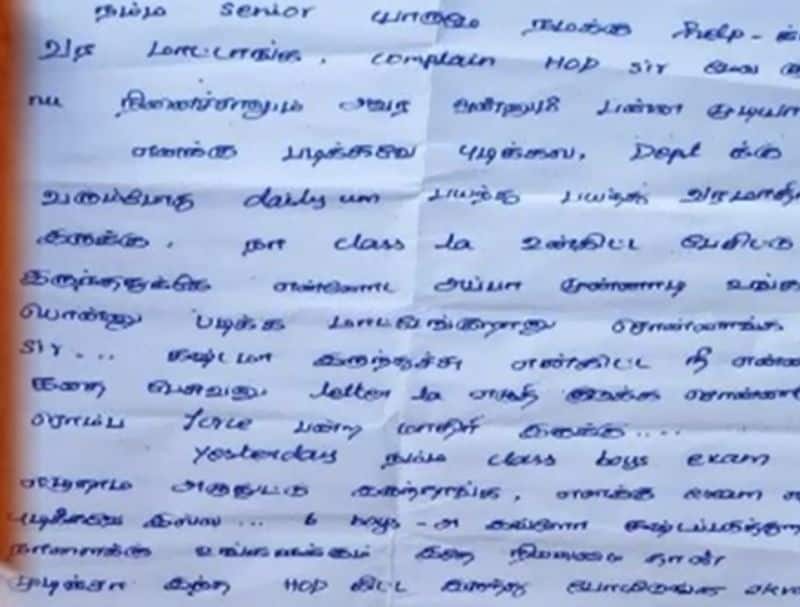 நம்ம senior யாருமே நமக்கு help-க்
வர மாட்டாங்க. complain HOD sir
nu நினைச்சாலும் அவர ஒண்ணும் பண்ண முடியா
எனக்கு படிக்கவே புடிக்கல. Dept க்கு
வரும்போது daily um பயந்து பயந்து வரமாதி
இருக்கு. நா class la உன்கிட்ட பேசிட்டு
இருந்ததுக்கே என்னோட அப்பா முன்னாடி உங்க
பொண்ணு படிக்க மாட்டேங்குறானு சொன்னாங்க
sir.... கஷ்டமா இருந்துச்சு என்கிட்ட நீ என்ன
letter la எழுதி குடுக்க சொன்னா
ரொம்ப force பண்ற மாதிரி இருக்கு....
yesterday நம்ம class boys exam
எழுதாம அழுதுட்டு இருந்தாங்க, எனக்கு exam
புடிக்கவே இல்ல... 6 boys-அ கஷ்டப்படுத்து
நாளைக்கு உங்களுக்கும் இதே நிலைமை தான்
முடிஞ்சா இந்த HOD கிட்ட இருந்து போயிடுங்க